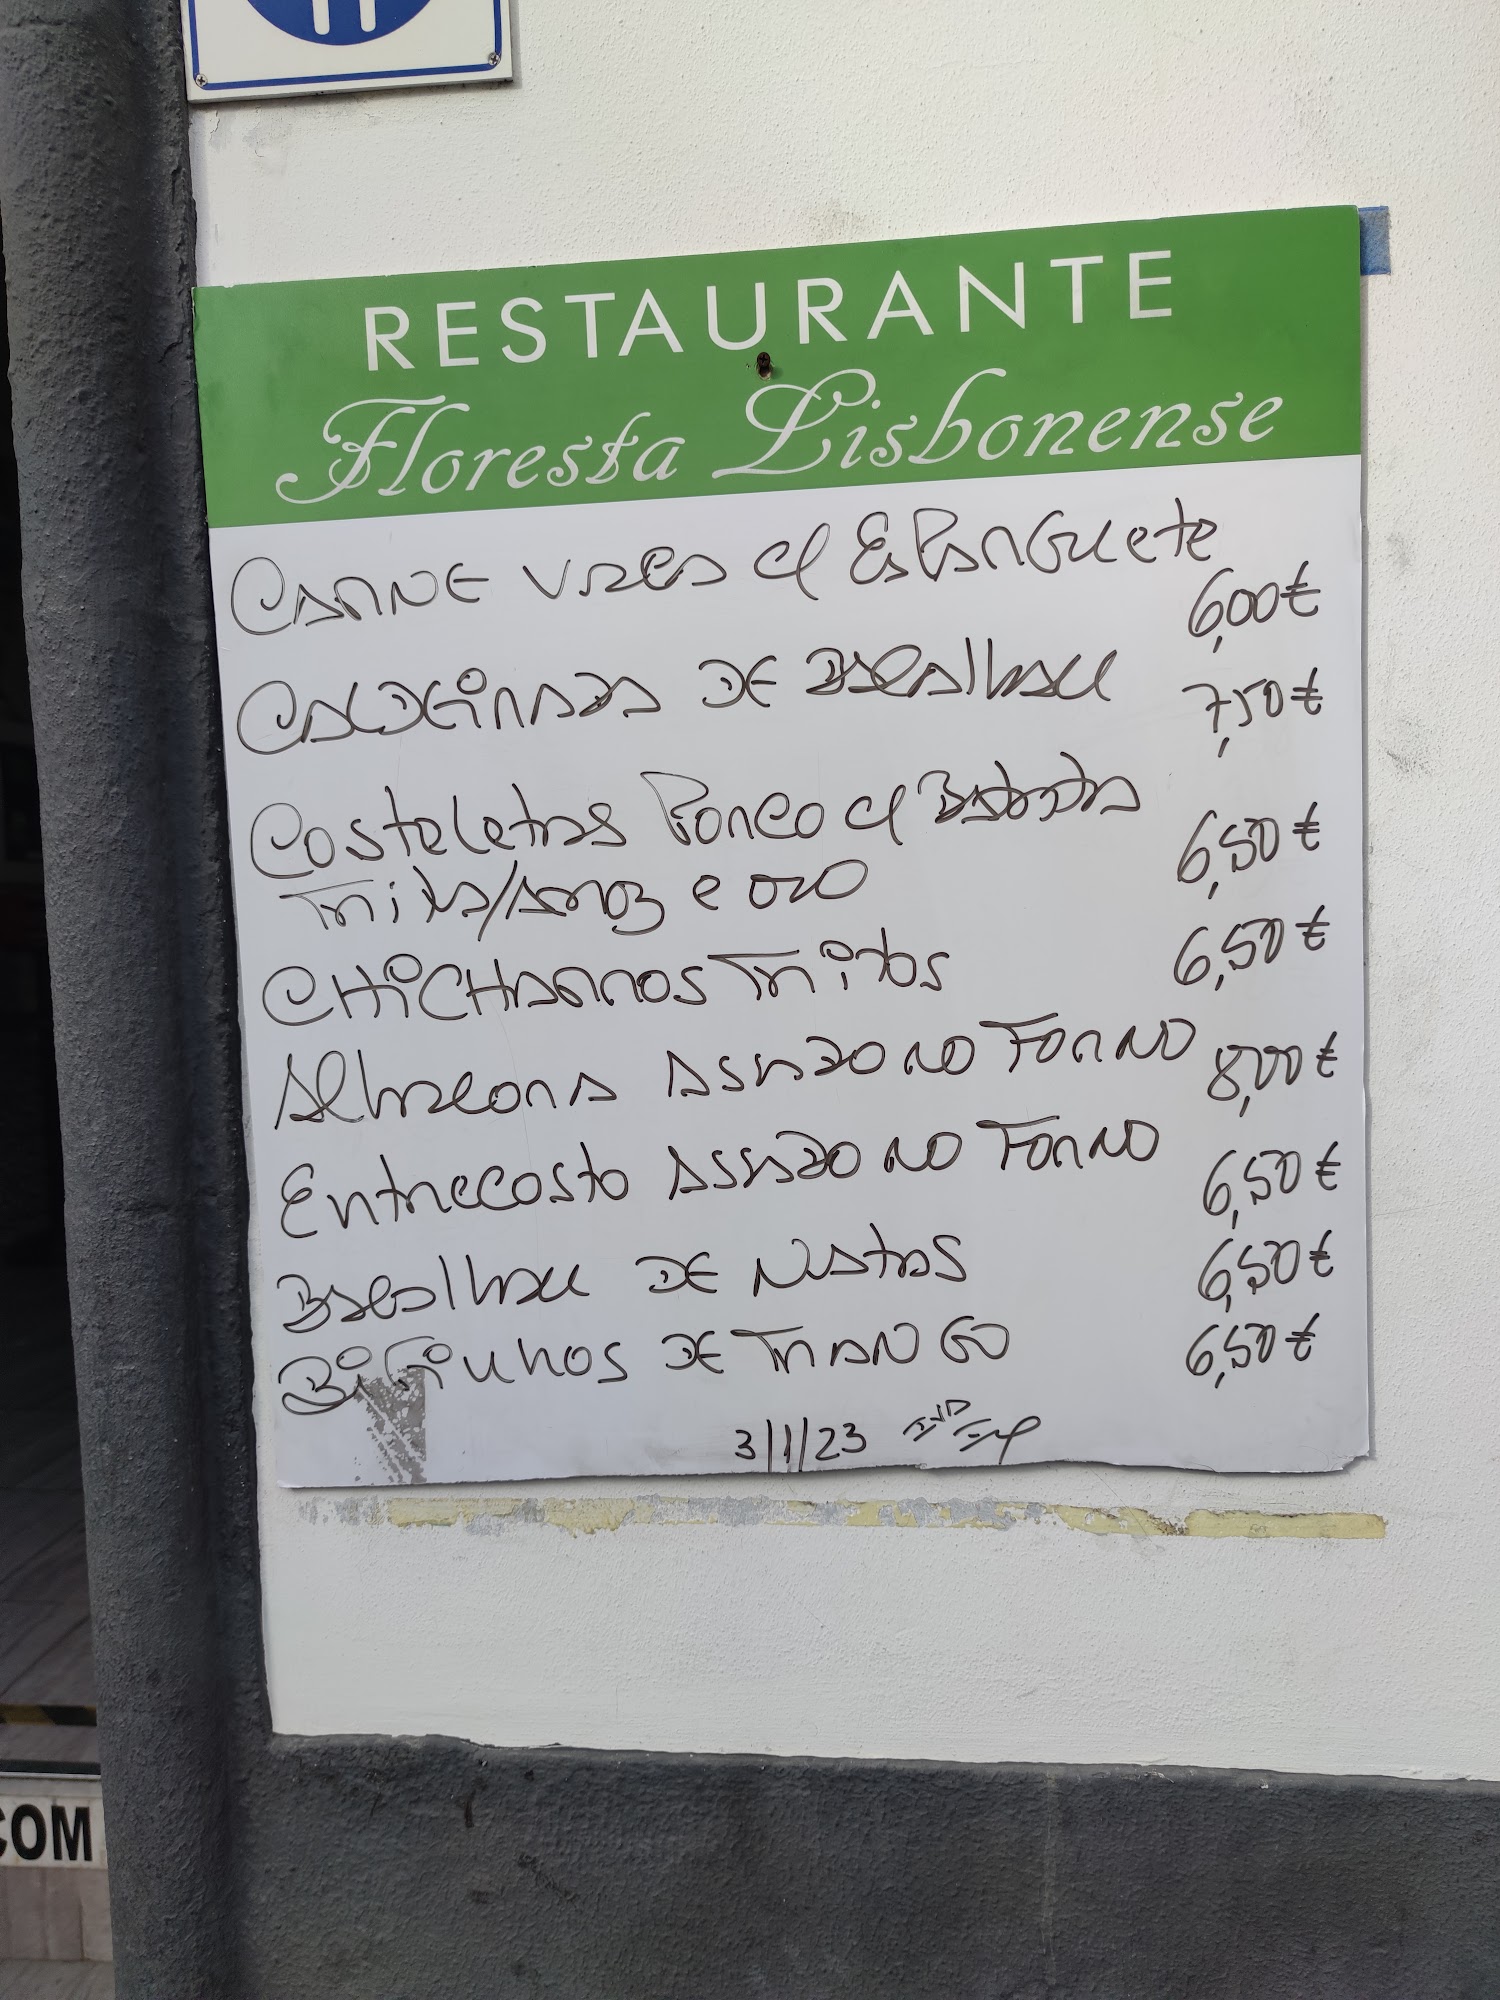 RESTAURANTE
Floresta Lisbonense
CARNE VACA c/ ESPARGUETE
6,00€
CALDEIRADA DE BACALHAU 7,50€
COSTELETAS PORCO c/ BATATA 6,50€
FRITA/ARROZ e OVO
CHICHARROS FRITOS 6,50€
ALBACORA ASSADO NO FORNO 8,00€
ENTRECOSTO ASSADO NO FORNO 6,50€
BACALHAU DE NATAS 6,50€
BIFINHOS DE FRANGO 6,50€
3/1/23
COM